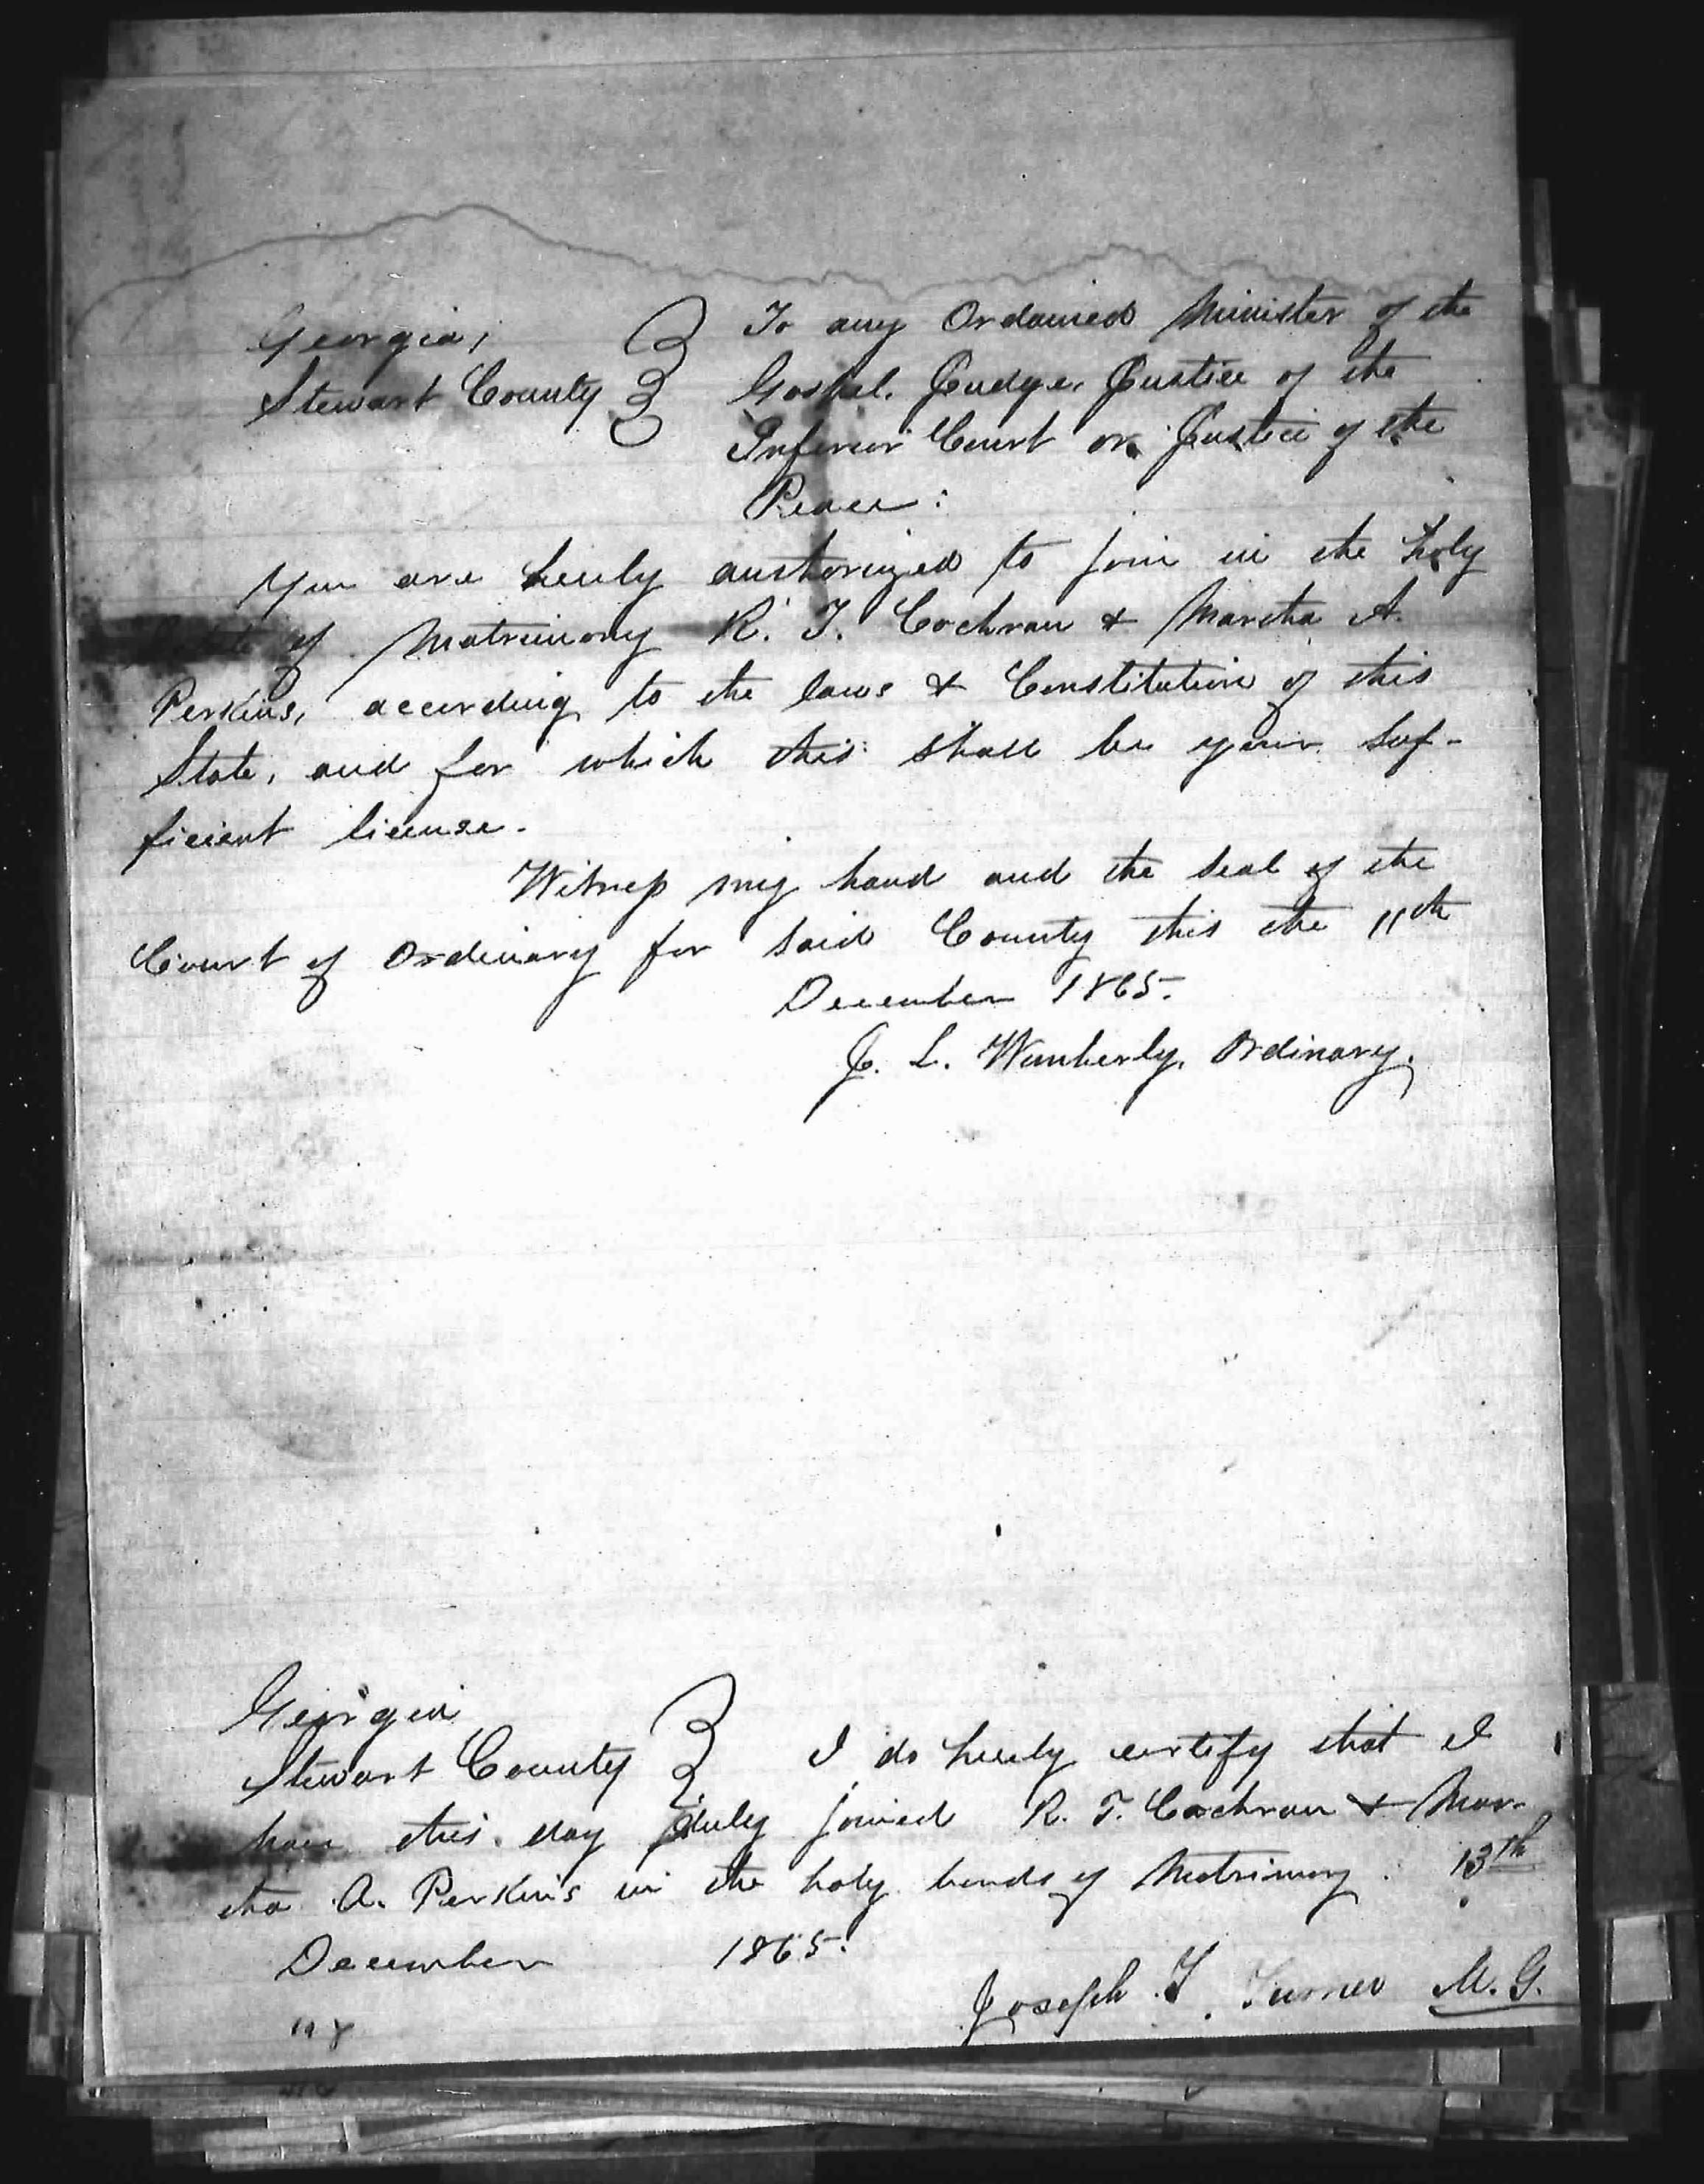 Georgia,
Stewart County
To any Ordained Minister of the
Gospel. Judge, Justice of the
Inferior Court or Justice of the
Peace:
You are hereby authorized to join in the holy
State of Matrimony R. T. Cochran & Martha A.
Perkins, according to the laws & Constitution of this
State, and for which this shall be your suf-
ficient license.
Witness my hand and the seal of the
Court of Ordinary for said County this the 11th
December 1865.
J. L. Wimberly, Ordinary.
Georgia
Stewart County
I do hereby certify that I
have this day duly joined R. T. Cochran & Mar-
tha A. Perkins in the holy bonds of Matrimony. 13th
December 1865.
Joseph T. Turner M. G.